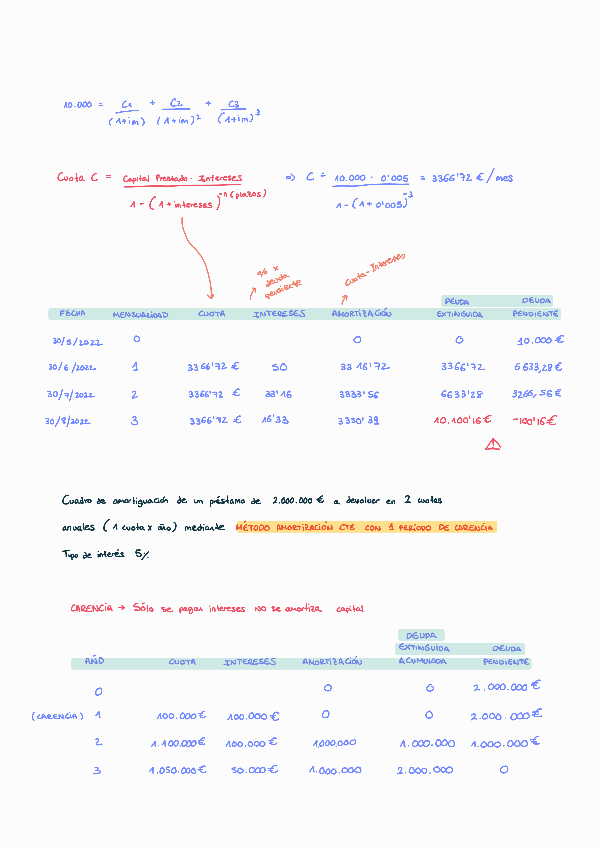 10.000 = C1 / (1+im) + C2 / (1+im)² + C3 / (1+im)³
Cuota C = Capital Prestado · Intereses / 1 - (1 + intereses)^-n (plazos) => C = 10.000 · 0'005 / 1 - (1 + 0'005)^-3 = 3366'72 €/mes
deuda pendiente
Cuota - Intereses
DEUDA DEUDA
FECHA MENSUALIDAD CUOTA INTERESES AMORTIZACIÓN EXTINGUIDA PENDIENTE
30/5/2022 0 0 0 10.000 €
30/6/2022 1 3366'72 € 50 3316'72 3366'72 6633,28 €
30/7/2022 2 3366'72 € 33'16 3333'56 6633'28 3266,56 €
30/8/2022 3 3366'72 € 16'33 3350'39 10.100'16 € -100'16 €
Cuadro de amortiguación de un préstamo de 2.000.000 € a devolver en 2 cuotas
anuales (1 cuota x año) mediante MÉTODO AMORTIZACIÓN CTE CON 1 PERÍODO DE CARENCIA
Tipo de interés 5%
CARENCIA → Sólo se pagan intereses NO se amortiza capital
DEUDA
EXTINGUIDA DEUDA
AÑO CUOTA INTERESES AMORTIZACIÓN ACUMULADA PENDIENTE
0 0 0 2.000.000 €
(CARENCIA) 1 100.000 € 100.000 € 0 0 2.000.000 €
2 1.100.000 € 100.000 € 1,000,000 1.000.000 1.000.000 €
3 1.050.000 € 50.000 € 1.000.000 2.000.000 0